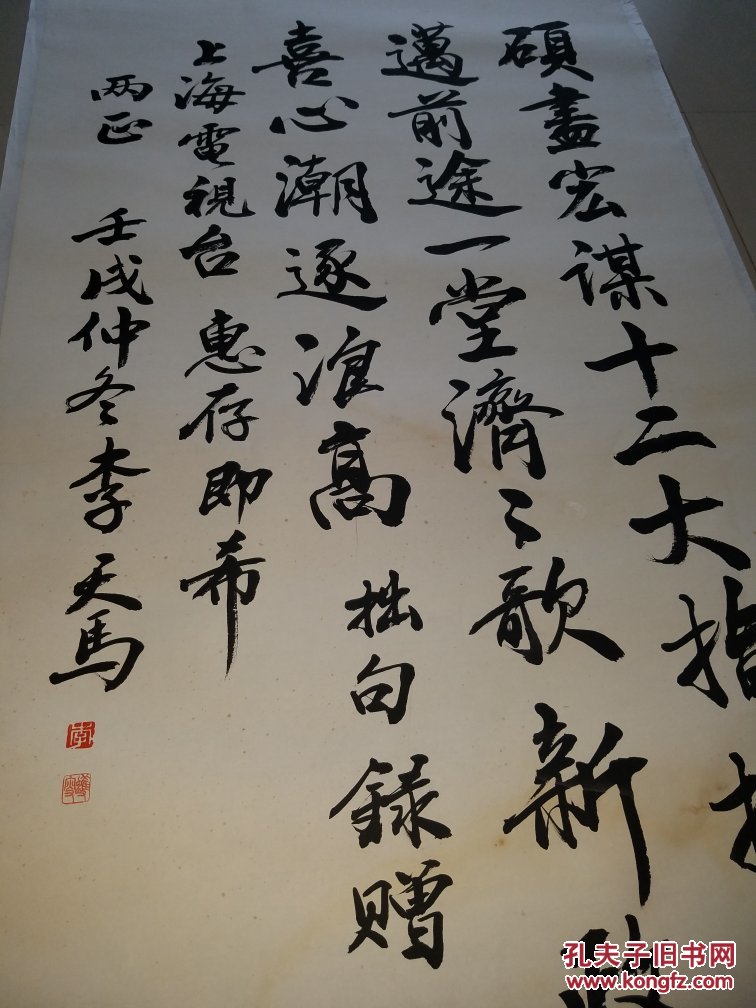 碩畫宏謀十二大指
邁前途一堂濟〻歌新
喜心潮逐浪高 拙句録贈
上海電視台 惠存即希
两正 壬戌仲冬李天馬
孔夫子旧书网
www.kongfz.com